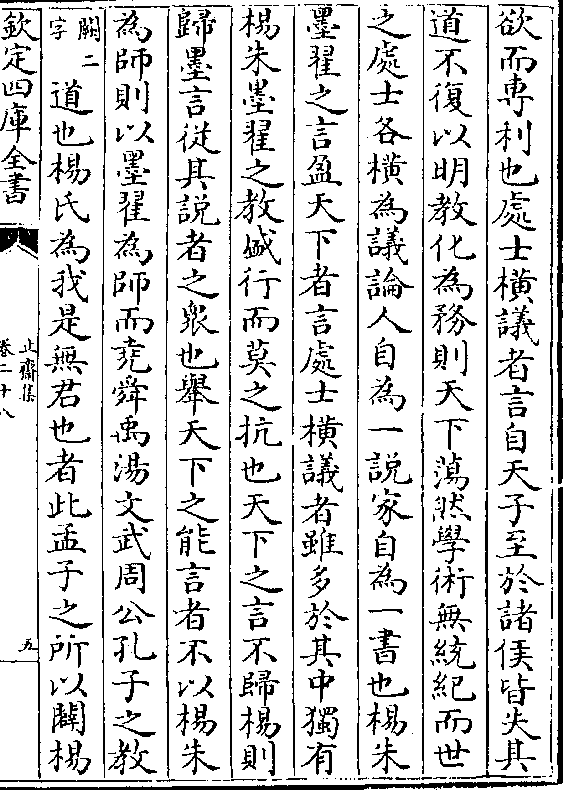 欲而專利也處士橫議者言自天子至於諸侯皆失其
道不復以明教化為務則天下蕩然學術無統紀而世
之處士各橫為議論人自為一說家自為一書也楊朱
墨翟之言盈天下者言處士橫議者雖多於其中獨有
楊朱墨翟之教盛行而莫之抗也天下之言不歸楊則
歸墨言從其說者之衆也舉天下之能言者不以楊朱
為師則以墨翟為師而堯舜禹湯文武周公孔子之教
闕二字道也楊氏為我是無君也者此孟子之所以闢楊
欽定四庫全書
止齋集
卷二十八
五